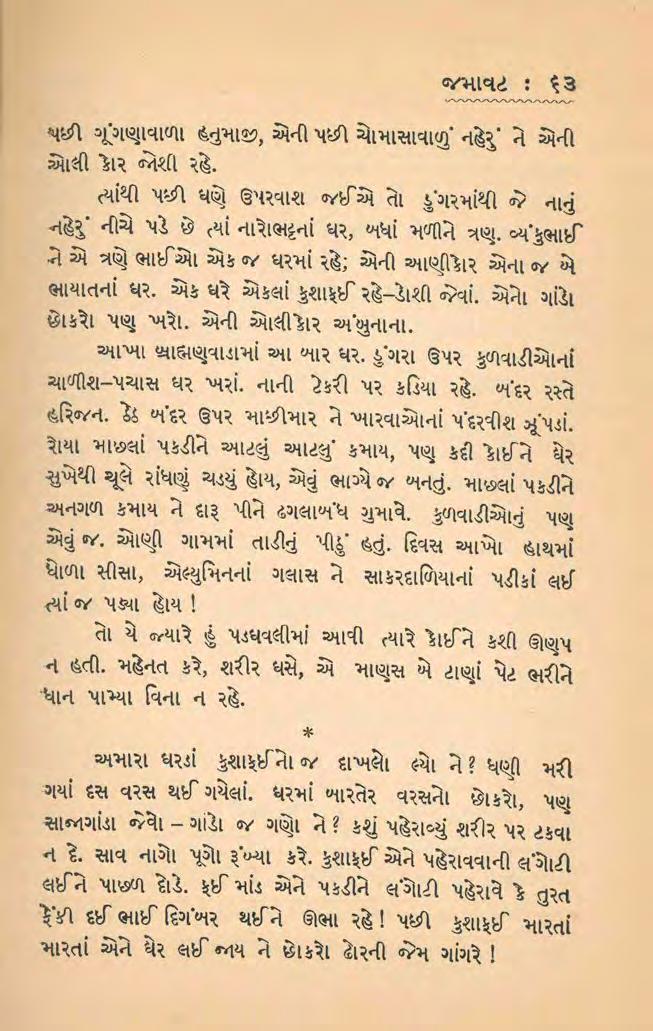 જમાવટ : ૬૩
પછી ગૂંગણાવાળા હનુમાજી, એની પછી ચોમાસાવાળું નહેરું ને એની
ઓલી કોર જોશી રહે.
ત્યાંથી પછી ઘણે ઉપરવાશ જઈએ તો ડુંગરમાંથી જે નાનું
નહેરું નીચે પડે છે ત્યાં નારોભટ્ટનાં ઘર, બધાં મળીને ત્રણ. વ્યંકુભાઈ
ને એ ત્રણે ભાઈઓ એક જ ઘરમાં રહે; એની આણીકોર એના જ બે
ભાયાતનાં ઘર. એક ઘરે એકલાં કુશાફઈ રહે–ડોશી જેવાં. એનો ગાંડો
છોકરો પણ ખરો. એની ઓલીકોર અંબુનાના.
આખા બ્રાહ્મણવાડામાં આ બાર ઘર. ડુંગરા ઉપર કુળવાડીઓનાં
ચાળીશ–પચાસ ઘર ખરાં. નાની ટેકરી પર કડિયા રહે. બંદર રસ્તે
હરિજન. ઠેઠ બંદર ઉપર માછીમાર ને ખારવાઓનાં પંદરવીશ ઝૂંપડાં.
રોયા માછલાં પકડીને આટલું આટલું કમાય, પણ કદી કોઈને ઘેર
સુખેથી ચૂલે રાંધણું ચડયું હોય, એવું ભાગ્યે જ બનતું. માછલાં પકડીને
અનગળ કમાય ને દારૂ પીને ઢગલાબંધ ગુમાવે. કુળવાડીઓનું પણ
એવું જ. ઓણી ગામમાં તાડીનું પીઠું હતું. દિવસ આખો હાથમાં
ધોળા સીસા, એલ્યુમિનનાં ગલાસ ને સાકરદાળિયાનાં પડીકાં લઈ
ત્યાં જ પડ્યા હોય !
તો યે જ્યારે હું પડઘવલીમાં આવી ત્યારે કોઈને કશી ઊણપ
ન હતી. મહેનત કરે, શરીર ઘસે, એ માણસ બે ટાણાં પેટ ભરીને
ધાન પામ્યા વિના ન રહે.
*
અમારા ઘરડાં કુશાફઈનો જ દાખલો લ્યો ને? ધણી મરી
ગયાં દસ વરસ થઈ ગયેલાં. ઘરમાં બારતેર વરસનો છોકરો, પણ
સાજાગાંડા જેવો – ગાંડો જ ગણો ને? કશું પહેરાવ્યું શરીર પર ટકવા
ન દે. સાવ નાગો પૂગો રૂંખ્યા કરે. કુશાફઈ એને પહેરાવવાની લંગોટી
લઈને પાછળ દોડે. ફઈ માંડ એને પકડીને લંગોટી પહેરાવે કે તુરત
ફેંકી દઈ ભાઈ દિગંબર થઈને ઊભા રહે! પછી કુશાફઈ મારતાં
મારતાં એને ઘેર લઈ જાય ને છોકરો ઢોરની જેમ ગાંગરે !